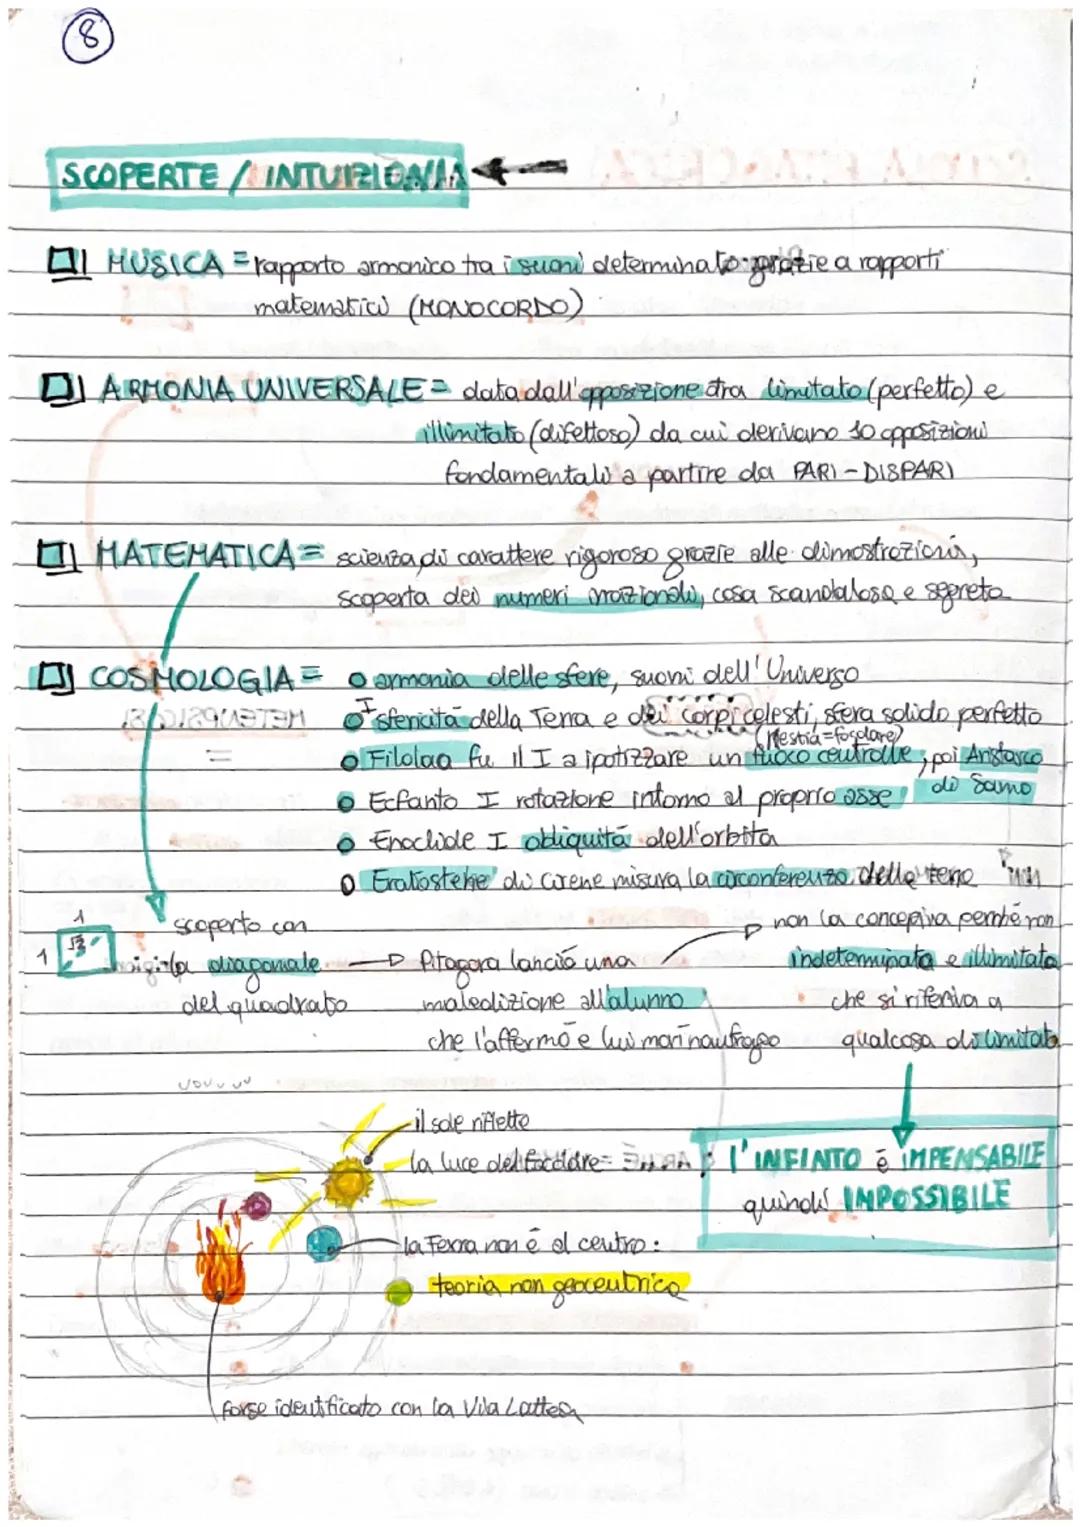 8
SCOPERTE / INTUIZIONI
MUSICA = rapporto armonico tra i suoni determinato grazie a rapporti
matematici (MONOCORDO)
ARMONIA UNIVERSALE = data dall'opposizione tra limitato (perfetto) e
illimitato (difettoso) da cui derivano 10 opposizioni
fondamentali a partire da PARI - DISPARI
MATEMATICA = scienza di carattere rigoroso grazie alle dimostrazioni,
scoperta dei numeri irrazionali, cosa scandalosa e segreta
COSMOLOGIA = armonia delle sfere, suoni dell'Universo
I sfericità della Terra e dei corpi celesti, sfera solido perfetto
(Hestia=focolare)
Filolao fu il I a ipotizzare un fuoco centrale, poi Aristarco
di Samo
Ecfanto I rotazione intorno al proprio asse
Enoclide I obliquità dell'orbita
Eratostene di Cirene misura la circonferenza della terra
1
1
√2
scoperto con
la diagonale
del quadrato
Pitagora lanciò una
maledizione all'alunno
che l'affermò e lui morì naufrago
non la concepiva perché non
indeterminata e illimitata
che si riferiva a
qualcosa di limitato
l'INFINTO è IMPENSABILE
quindi IMPOSSIBILE
il sole riflette
la luce del focolare
la Terra non è al centro:
teoria non geocentrica
forse identificato con la Via Lattea